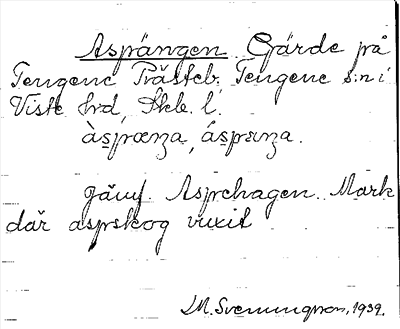 Aspängen Gärde på
Tengene Prästeb. Tengene s:n i
Viste hrd, Skb. l.
àspœŋa, áspæŋa.
jämf. Aspehagen. Mark
där aspskog vuxit
M. Svenungson, 1939.